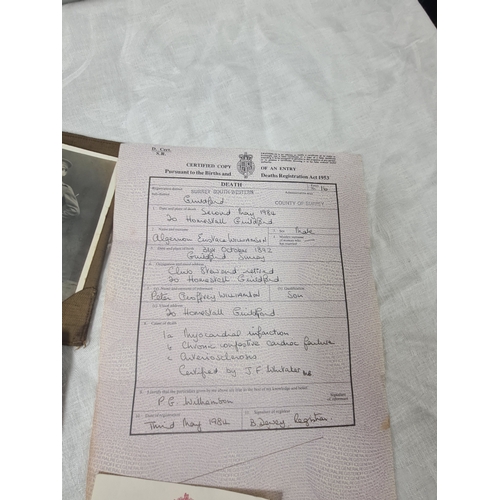 D. Cert.
S.R.
CERTIFIED COPY OF AN ENTRY
Pursuant to the Births and Deaths Registration Act 1953
DEATH
Registration district SURREY SOUTH WESTERN
Guildford COUNTY OF SURREY
1. Date and place of death
Second May 1984
20 Homestall Guildford
2. Name and surname
Algernon Eustace WILLIAMSON
3. Sex Male
October 1892
Guildford Surrey
Club Steward retired
20 Homestall Guildford
7. (a) Name and surname of informant
(b) Qualification
Peter Geoffrey WILLIAMSON
Son
(c) Usual address
20 Homestall Guildford
8. Cause of death
1a Myocardial infarction
b Chronic congestive cardiac failure
c Arteriosclerosis
Certified by J.F. Whitaker MB
9. I certify that the particulars given by me above are true to the best of my knowledge and belief
P.G. Williamson
Signature of informant
10. Date of registration
11. Signature of registrar
Third May 1984
B Dewey Registrar